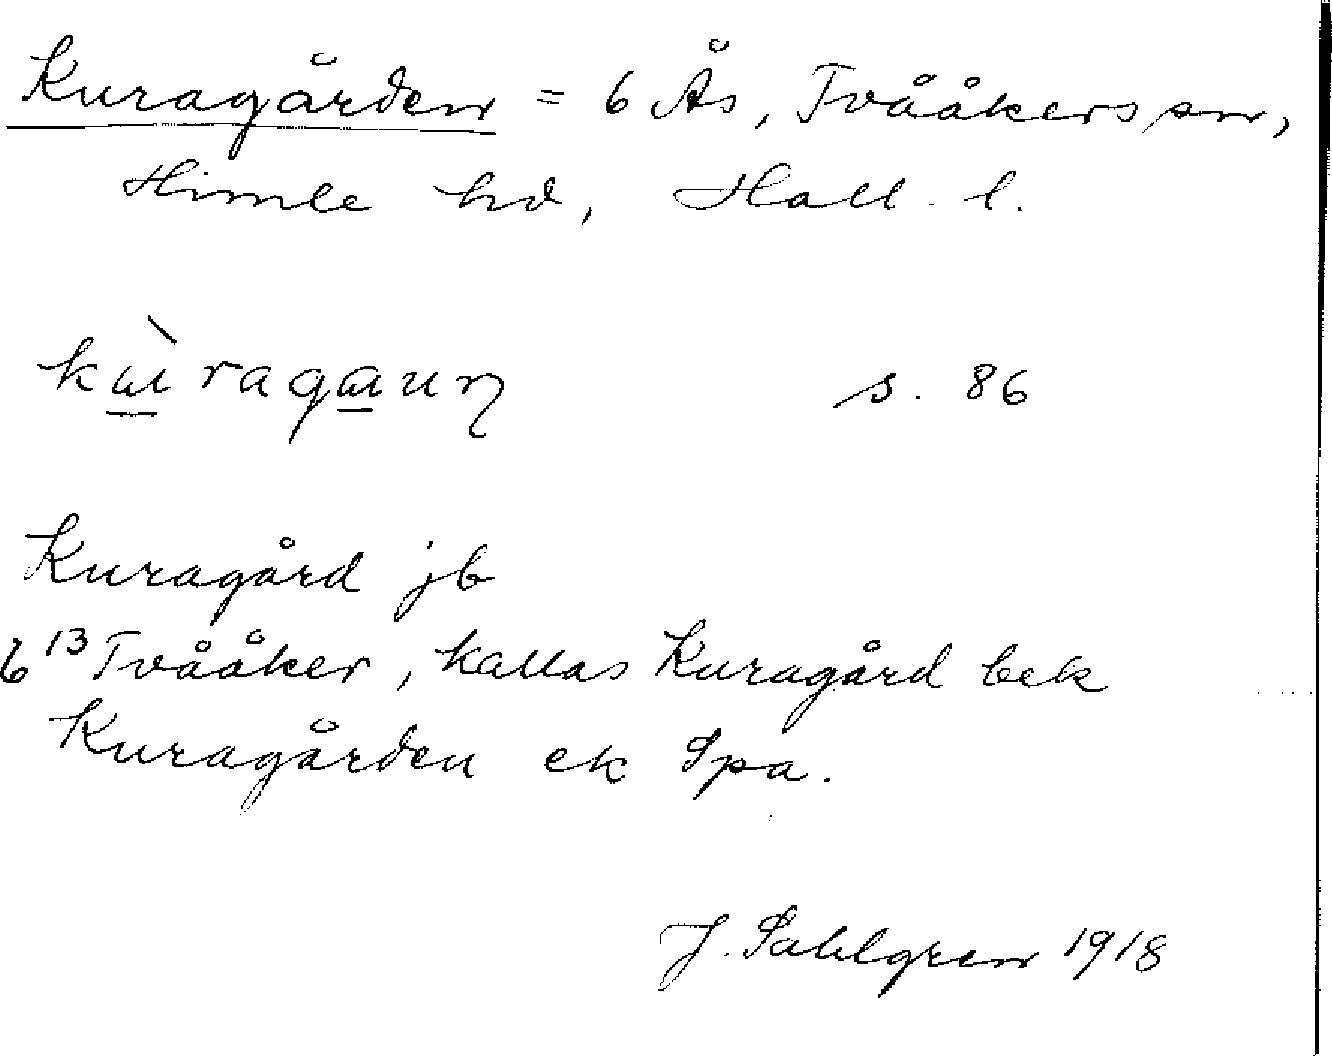 Kuragården = 6 Ås, Tvååkers sn,
Himle hd, Hall. l.
s. 86
Kuragård jb
6¹³ Tvååker, kallas Kuragård bek
Kuragården ek Spa.
J. Sahlgren 1918